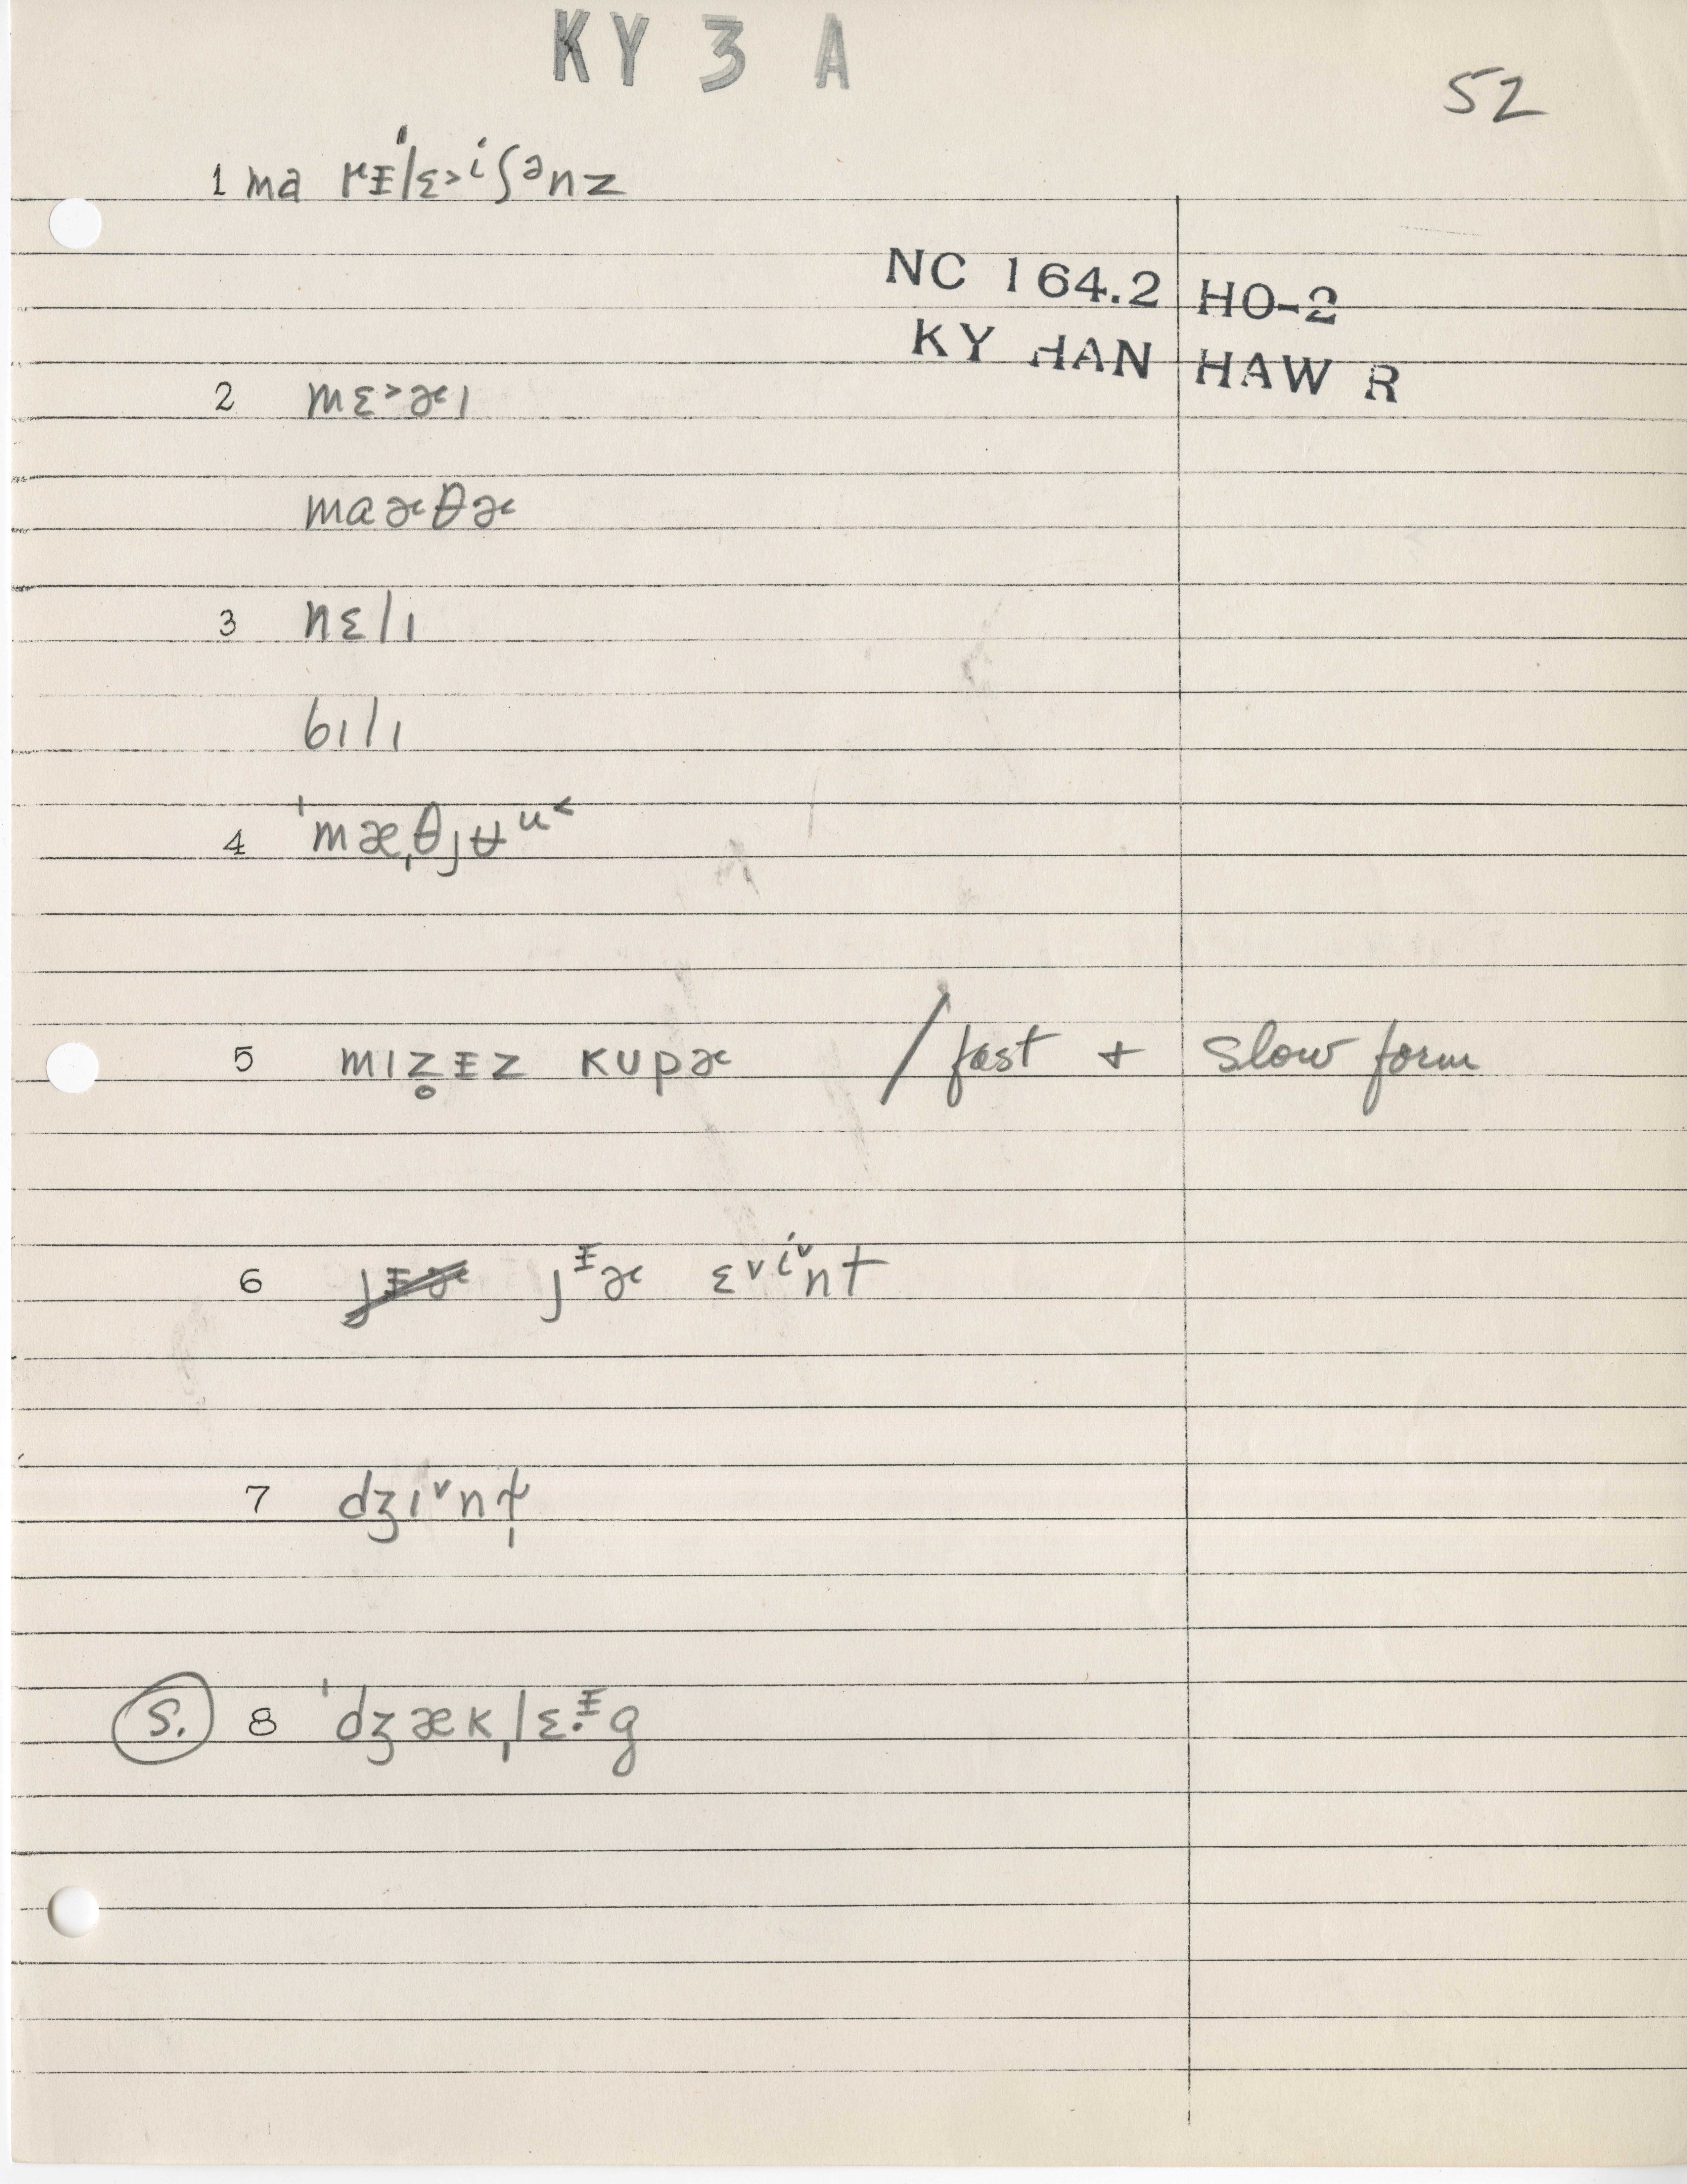 KY 3 A
52
1 ma rᵻˈlɛ˃ⁱʃənz
NC 164.2 HO-2
KY HAN HAW R
2 mɛ˃ɚı
maɚθɚ
3 nɛlı
bılı
4 ˈmæˌθjʉᵘ˂
5 mız̥ᵻz kupɚ / fast + slow form
6 jᵻɚ jᵻɚ ɛ˅ⁱ˅nt
7 dʒı˅nt̬
S. 8 ˈdʒækˌlɛ·ᵻg